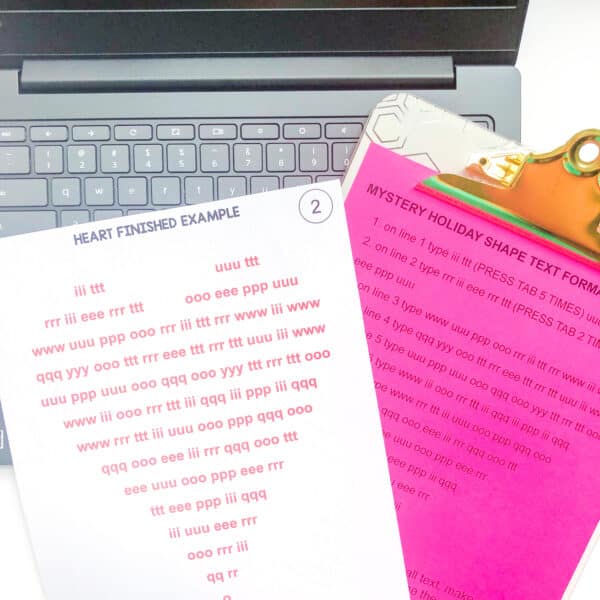 HEART FINISHED EXAMPLE
2
iii ttt uuu ttt
rrr iii eee rrr ttt ooo eee ppp uuu
www uuu ppp ooo rrr iii ttt rrr www iii www
qqq yyy ooo ttt rrr eee ttt rrr ttt uuu iii www
uuu ppp uuu ooo qqq ooo yyy ttt rrr ttt ooo
www iii ooo rrr ttt iii qqq iii ppp iii qqq
www rrr ttt iii uuu ooo ppp qqq ooo
qqq ooo eee iii rrr qqq ooo ttt
eee uuu ooo ppp eee rrr
ttt eee ppp iii qqq
iii uuu eee rrr
ooo rrr iii
qq rr
MYSTERY HOLIDAY SHAPE TEXT FORMA
1. on line 1 type iii ttt (PRESS TAB 5 TIMES) uuu
2. on line 2 type rrr iii eee rrr ttt (PRESS TAB 2 TIM
eee ppp uuu
on line 3 type www uuu ppp ooo rrr iii ttt rrr www iii
line 4 type qqq yyy ooo ttt rrr eee ttt rrr ttt uuu iii w
5 type uuu ppp uuu ooo qqq ooo yyy ttt rrr ttt ooo
type www iii ooo rrr ttt iii qqq iii ppp iii qqq
www rrr ttt iii uuu ooo ppp qqq ooo
qqq ooo eee iii rrr qqq ooo ttt
eee uuu ooo ppp eee rrr
eee ppp iii qqq
eee rrr
iii
all text, make